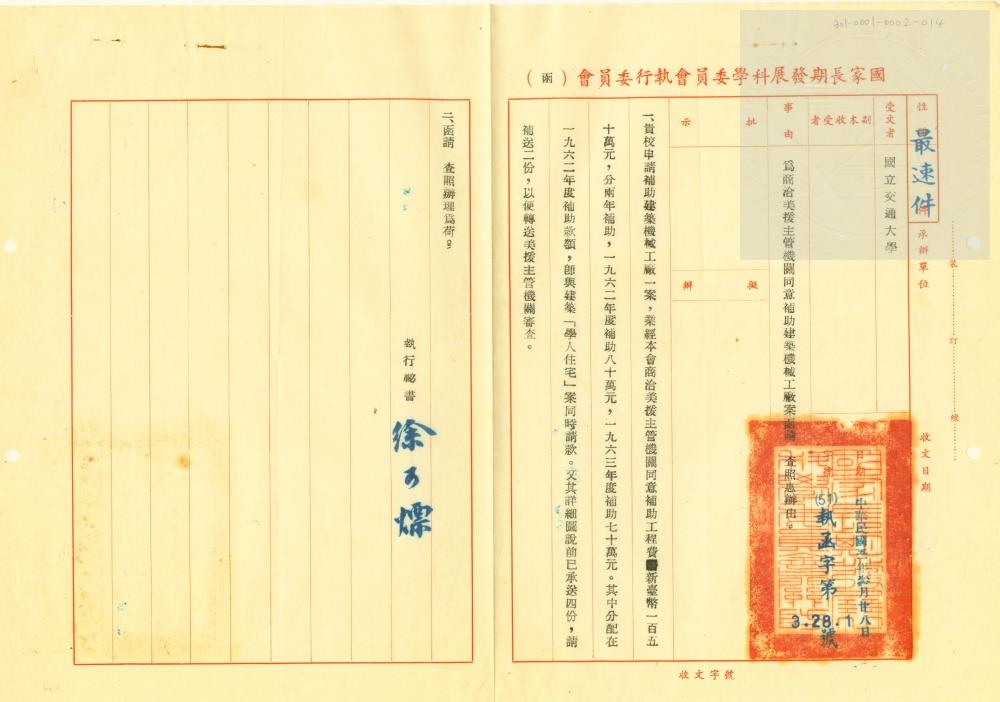 301-0001-0002-014
國家長期發展科學委員會執行委員會（函）
性 件
最速件
承辦單位
裝 訂 線
收文日期
受文者 國立交通大學
副本收受者
事由 為商洽美援主管機關同意補助建築機械工廠案函請 查照惠辦由。
日期
中華民國
月廿八日
(51)執函字第
3.28.1 號
批示
擬辦
一、貴校申請補助建築機械工廠一案，業經本會商洽美援主管機關同意補助工程費新臺幣一百五
十萬元，分兩年補助，一九六二年度補助八十萬元，一九六三年度補助七十萬元。其中分配在
一九六二年度補助款額，即與建築「學人住宅」案同時請款。又其詳細圖說前已承送四份，請
補送二份，以便轉送美援主管機關審查。
收文字號
二、函請 查照辦理為荷。
執行祕書 徐可熛